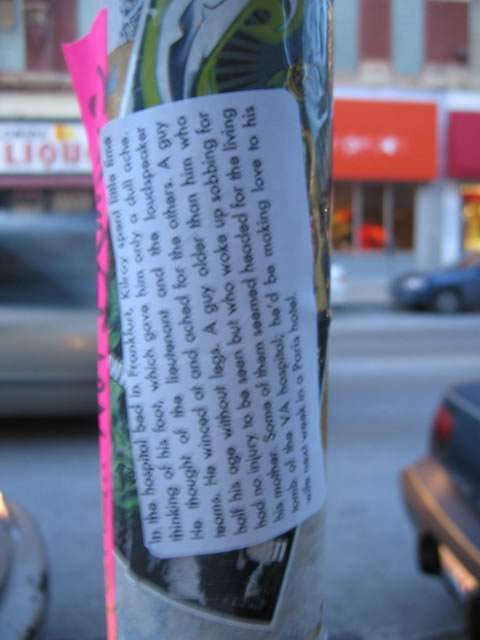 In the hospital bed in Frankfurt, Kilroy spent little time
thinking of his foot, which gave him only a dull ache.
He thought of the lieutenant and the loudspeaker
teams. He winced at and ached for the others. A guy
half his age without legs. A guy older than him who
had no injury to be seen but who woke up sobbing for
his mother. Some of them seemed headed for the living
tomb of the VA hospital; he'd be making love to his
wife next week in a Paris hotel.
LIQU